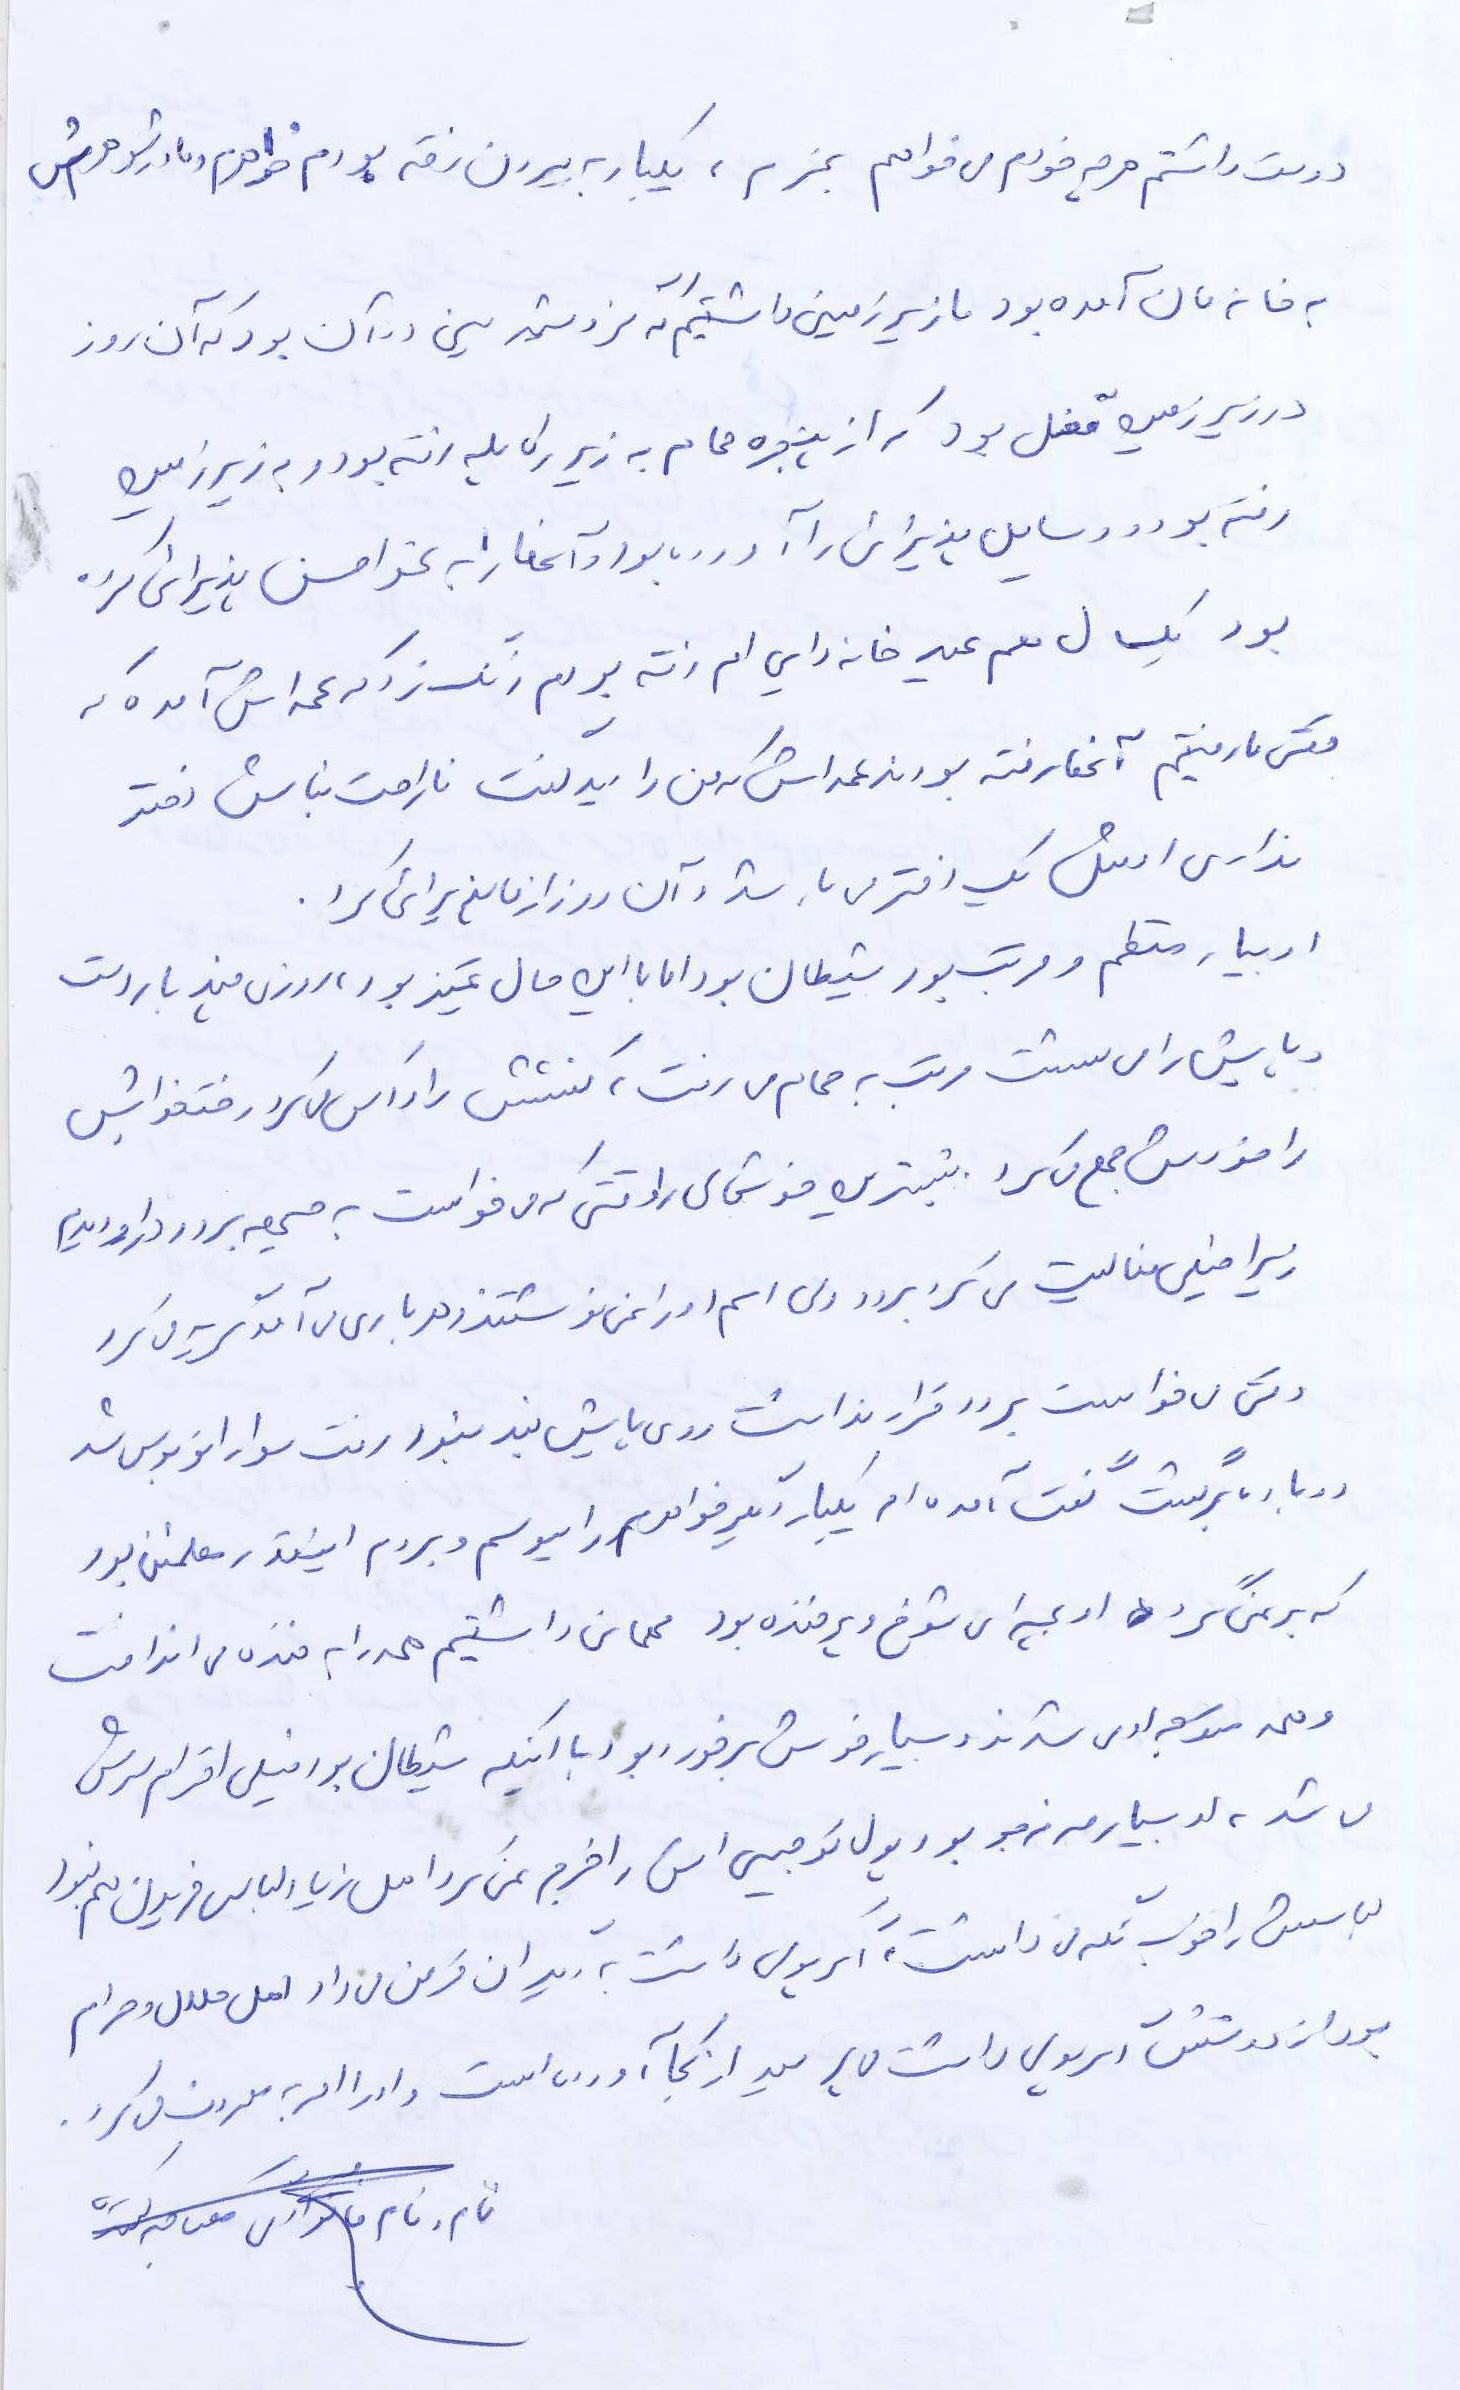 دوست داشتم هرچه خودم می خواهم بخرم ، یکبار به بیرون رفته بودم خواهرم و مادرشوهرش
به خانه مان آمده بود ما زیرزمینی داشتیم که در آن بود که آن روز
در زیرزمین قفل بود که از پنجره حمام به زیر راه پله رفته بود و به زیرزمین
رفته بود و وسایل پذیرائی را آورده بود و آنها را به نحو احسن پذیرائی کرده
بود یکسال هم عید خانه دایی ام رفته بودم زنگ زد که عمه اش آمده که
وقتی ما رفتیم آنها رفته بودند عمه اش که من را دید گفت ناراحت نباش دختر
نداری او مثل یک دختر می باشد و آن روز از ما پذیرائی کرد .
او بسیار منظم و مرتب بود شیطان بود اما با این حال تمیز بود ، روزی چند بار دست
و پایش را می شست مرتب به حمام می رفت ، کفشش را واکس می کرد رختخوابش
را خودش جمع می کرد . بیشترین خوشحالی را وقتی که می خواست به جبهه برود در او دیدم
زیرا خیلی فعالیت می کرد برود ولی اسم او را نمی نوشتند و هر باری می آمد گریه می کرد
وقتی می خواست برود قرار نداشت روی پایش بند نبود رفت سوار اتوبوس شد
دوباره برگشت گفت آمده ام یکبار دیگر خواهرم را ببوسم و بروم اینقدر مطمئن بود
که برنمی گردد او بچه ای شوخ و پرخنده بود مهمانی داشتیم همه را به خنده می انداخت
و همه متوجه او می شدند و بسیار خوش برخورد بود با اینکه شیطان بود خیلی احترام سرش
می شد ، او بسیار صرفه جو بود پول توجیبی اش را خرج نمی کرد اهل زیاد لباس خریدن هم نبود
لباسش را خوب نگه می داشت ، اگر پولی داشت به دیگران قرض می داد اهل حلال و حرام
بود از دوستش اگر پولی داشت می پرسید از کجا آورده است و او را امر به معروف می کرد .
نام و نام خانوادگی مصاحبه کننده